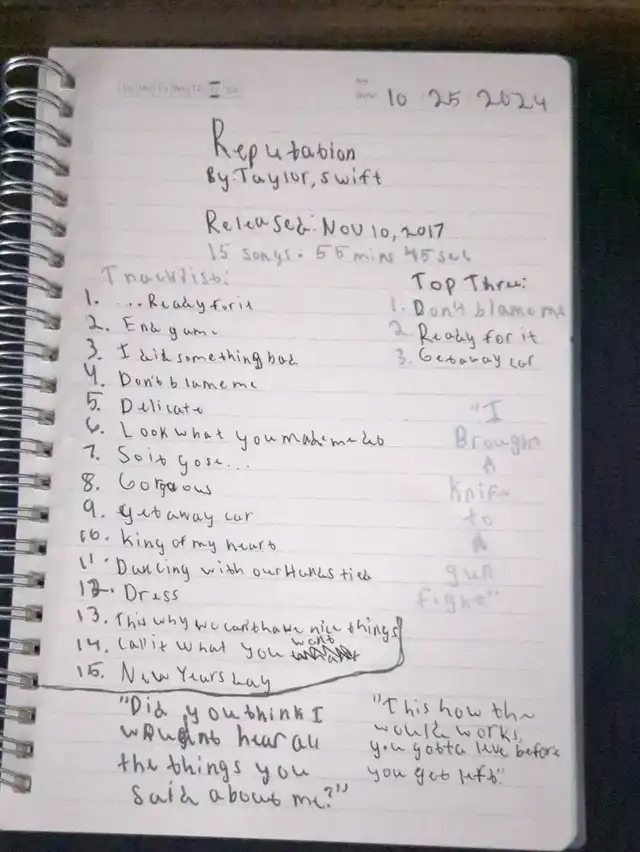 10 25 2024
Reputation
By: Taylor, Swift
Released: Nov 10, 2017
15 songs. 55 mins 45 sec
Tracklist:
1. ...Ready for it
2. End game
3. I did something bad
4. Don't blame me
5. Delicate
6. Look what you made me do
7. So it gose...
8. Gorgeous
9. getaway car
10. king of my heart
11. Dancing with our Hands tied
12. Dress
13. This why we can't have nice things
14. Call it what you want
15. New Years day
Top Three:
1. Don't blame me
2. Ready for it
3. Getaway car
"I
Brough
A
knife
to
A
gun
fight"
"Did you think I
woudnt hear all
the things you
said about me?"
"This how the
world works,
you gotta leve before
you get left."